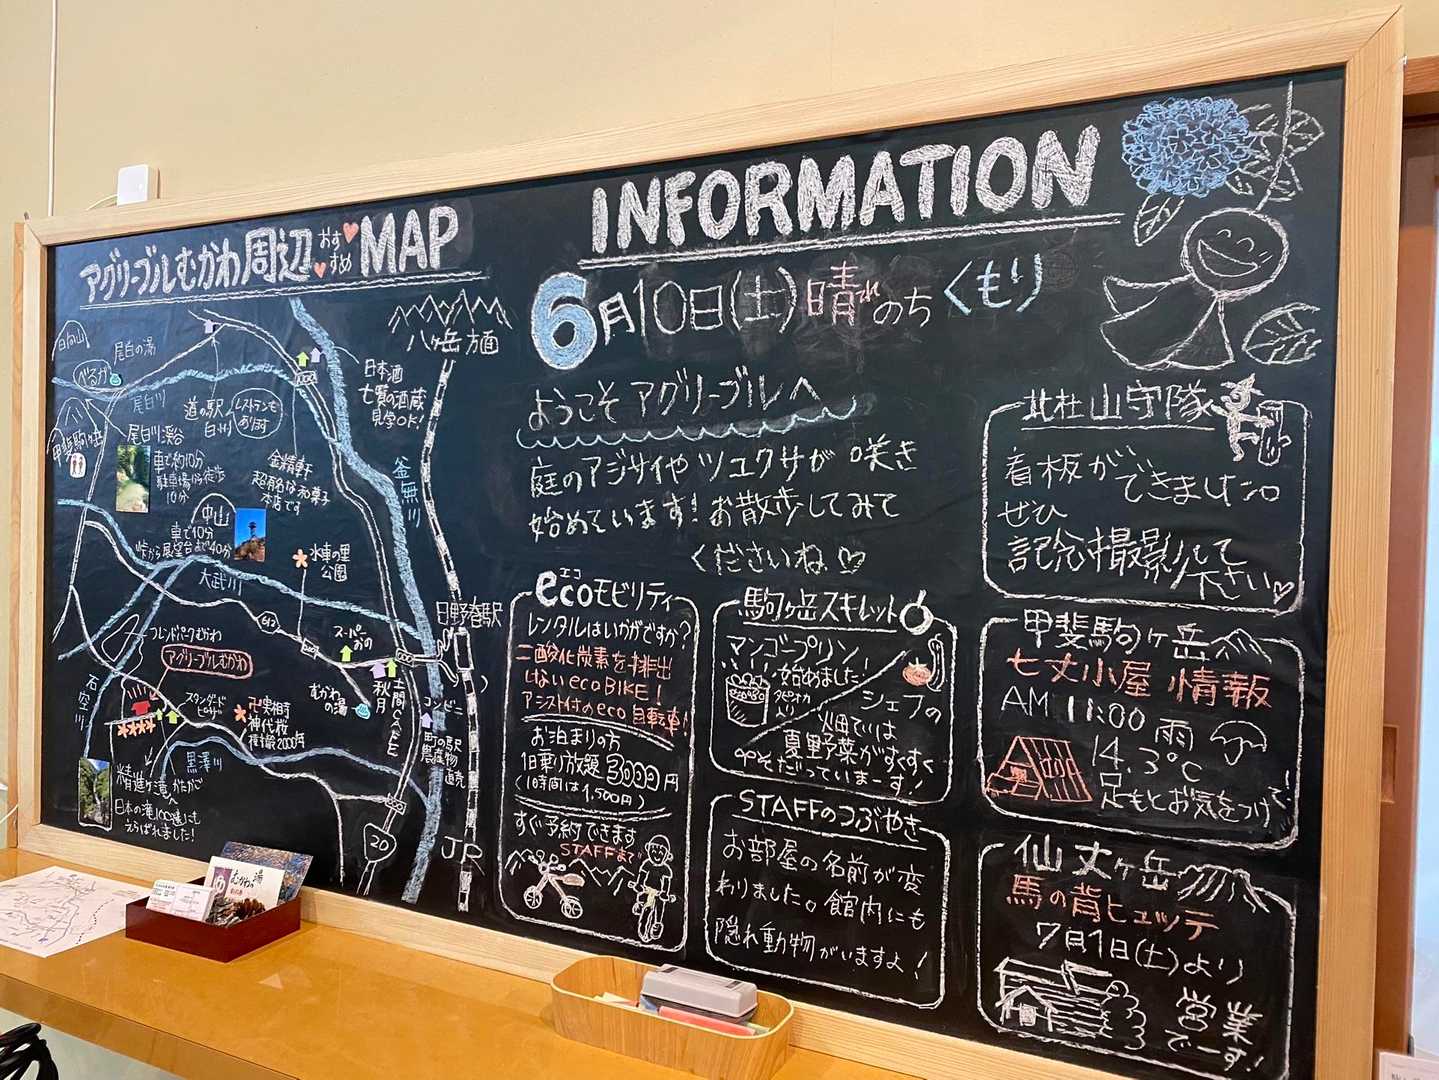 アグリーブルむかわ周辺 おすすめ MAP
八ヶ岳方面
日向山
尾白の湯
べるが
尾白川
日本酒
七賢の酒蔵
見学OK!
道の駅
白州
レストランも
あります
甲斐駒ヶ岳
尾白川渓谷
車で約10分
駐車場から徒歩
10分
金精軒
超有名な和菓子
本店です
釜無川
中山
車で10分
峠から展望台まで40分
水車の里
公園
大武川
日野春駅
612
フレンドパークむかわ
アグリーブルむかわ
スーパー
おの
石空川
スタンダード
ピザ
実相寺
神代桜
樹齢2000年
むかわ
の湯
秋月
土間CAFE
コンビニ
町の駅
農産物
直売
黒澤川
精進ヶ滝
日本の滝100選にも
えらばれました!
20
JR
むかわの湯
INFORMATION
6月10日(土)晴れのちくもり
ようこそアグリーブルへ
庭のアジサイやツユクサが咲き
始めています!お散歩してみて
くださいね♡
エコ
ecoモビリティ
レンタルはいかがですか?
二酸化炭素を排出
しないecoBIKE!
アシスト付のeco自転車!
お泊まりの方
1日乗り放題3000円
(1時間は1,500円)
すぐ予約できます
STAFFまで
駒ヶ岳スキレット
マンゴープリン
始めました!
タピオカ
入り
シェフの
畑では
夏野菜がすくすく
そだっていまーす!
STAFFのつぶやき
お部屋の名前が変
わりました。館内にも
隠れ動物がいますよ!
北杜山守隊
看板ができました
ぜひ
記念撮影して
下さい♡
甲斐駒ヶ岳
七丈小屋 情報
AM 11:00 雨
14.3℃
足もとお気をつけて!
仙丈ヶ岳
馬の背ヒュッテ
7月1日(土)より
営業
でーす!